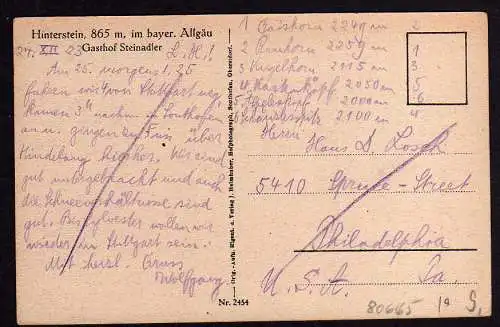 Hinterstein, 865 m, im bayer. Allgäu
Gasthof Steinadler
27. XII 23 L. H.!
Am 25. morgens 1,25
fuhren wir von Stuttgart weg
kamen 3h nachm in Sonthofen
an u. gingen zu Fuss über
Hindelang hierher. Wir sind
gut untergebracht und auch
die Schneeverhältnisse sind
gut. Bis Sylvester wollen wir
wieder in Stuttgart sein.
Mit herzl. Gruss
Wolfgang.
1 Gaishorn 2249 m 2
2 Rauhorn 2259 m 1
3 Kugelhorn 2115 m 3
4 Kastenkopf 2050 m 5
2000 m 6
2100 m 4
Herrn
Hans D. Losch
5410 Spruce-Street
Philadelphia
U.S.A. Pa.
Orig.-Aufn. Eigent. u. Verlag J. Heimhuber, Hofphotograph, Sonthofen, Oberstdorf.
Nr. 2454
80665 1a S,